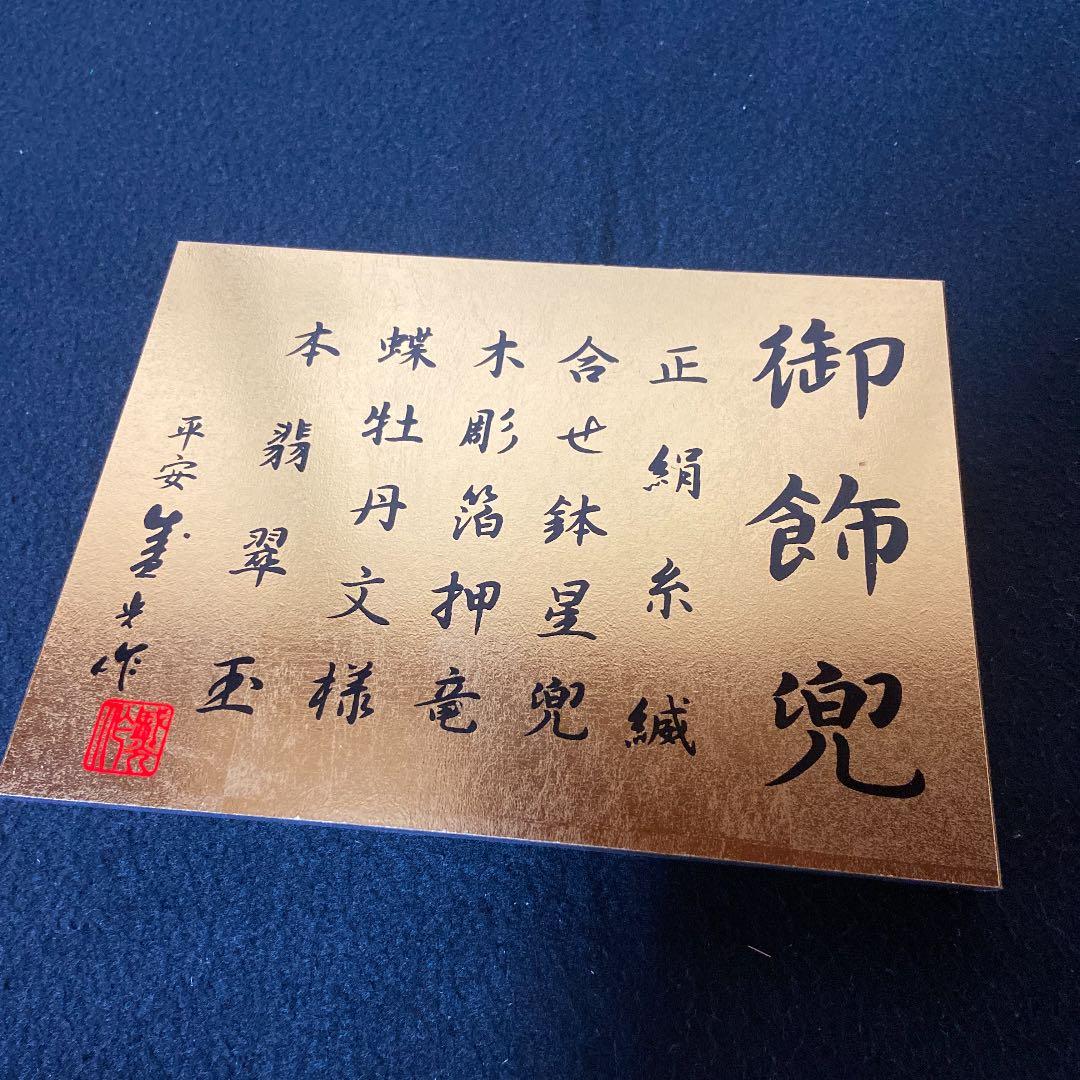 御飾兜
正絹糸縅
合せ鉢星兜
木彫箔押竜
蝶牡丹文様
本翡翠玉
平安
光作